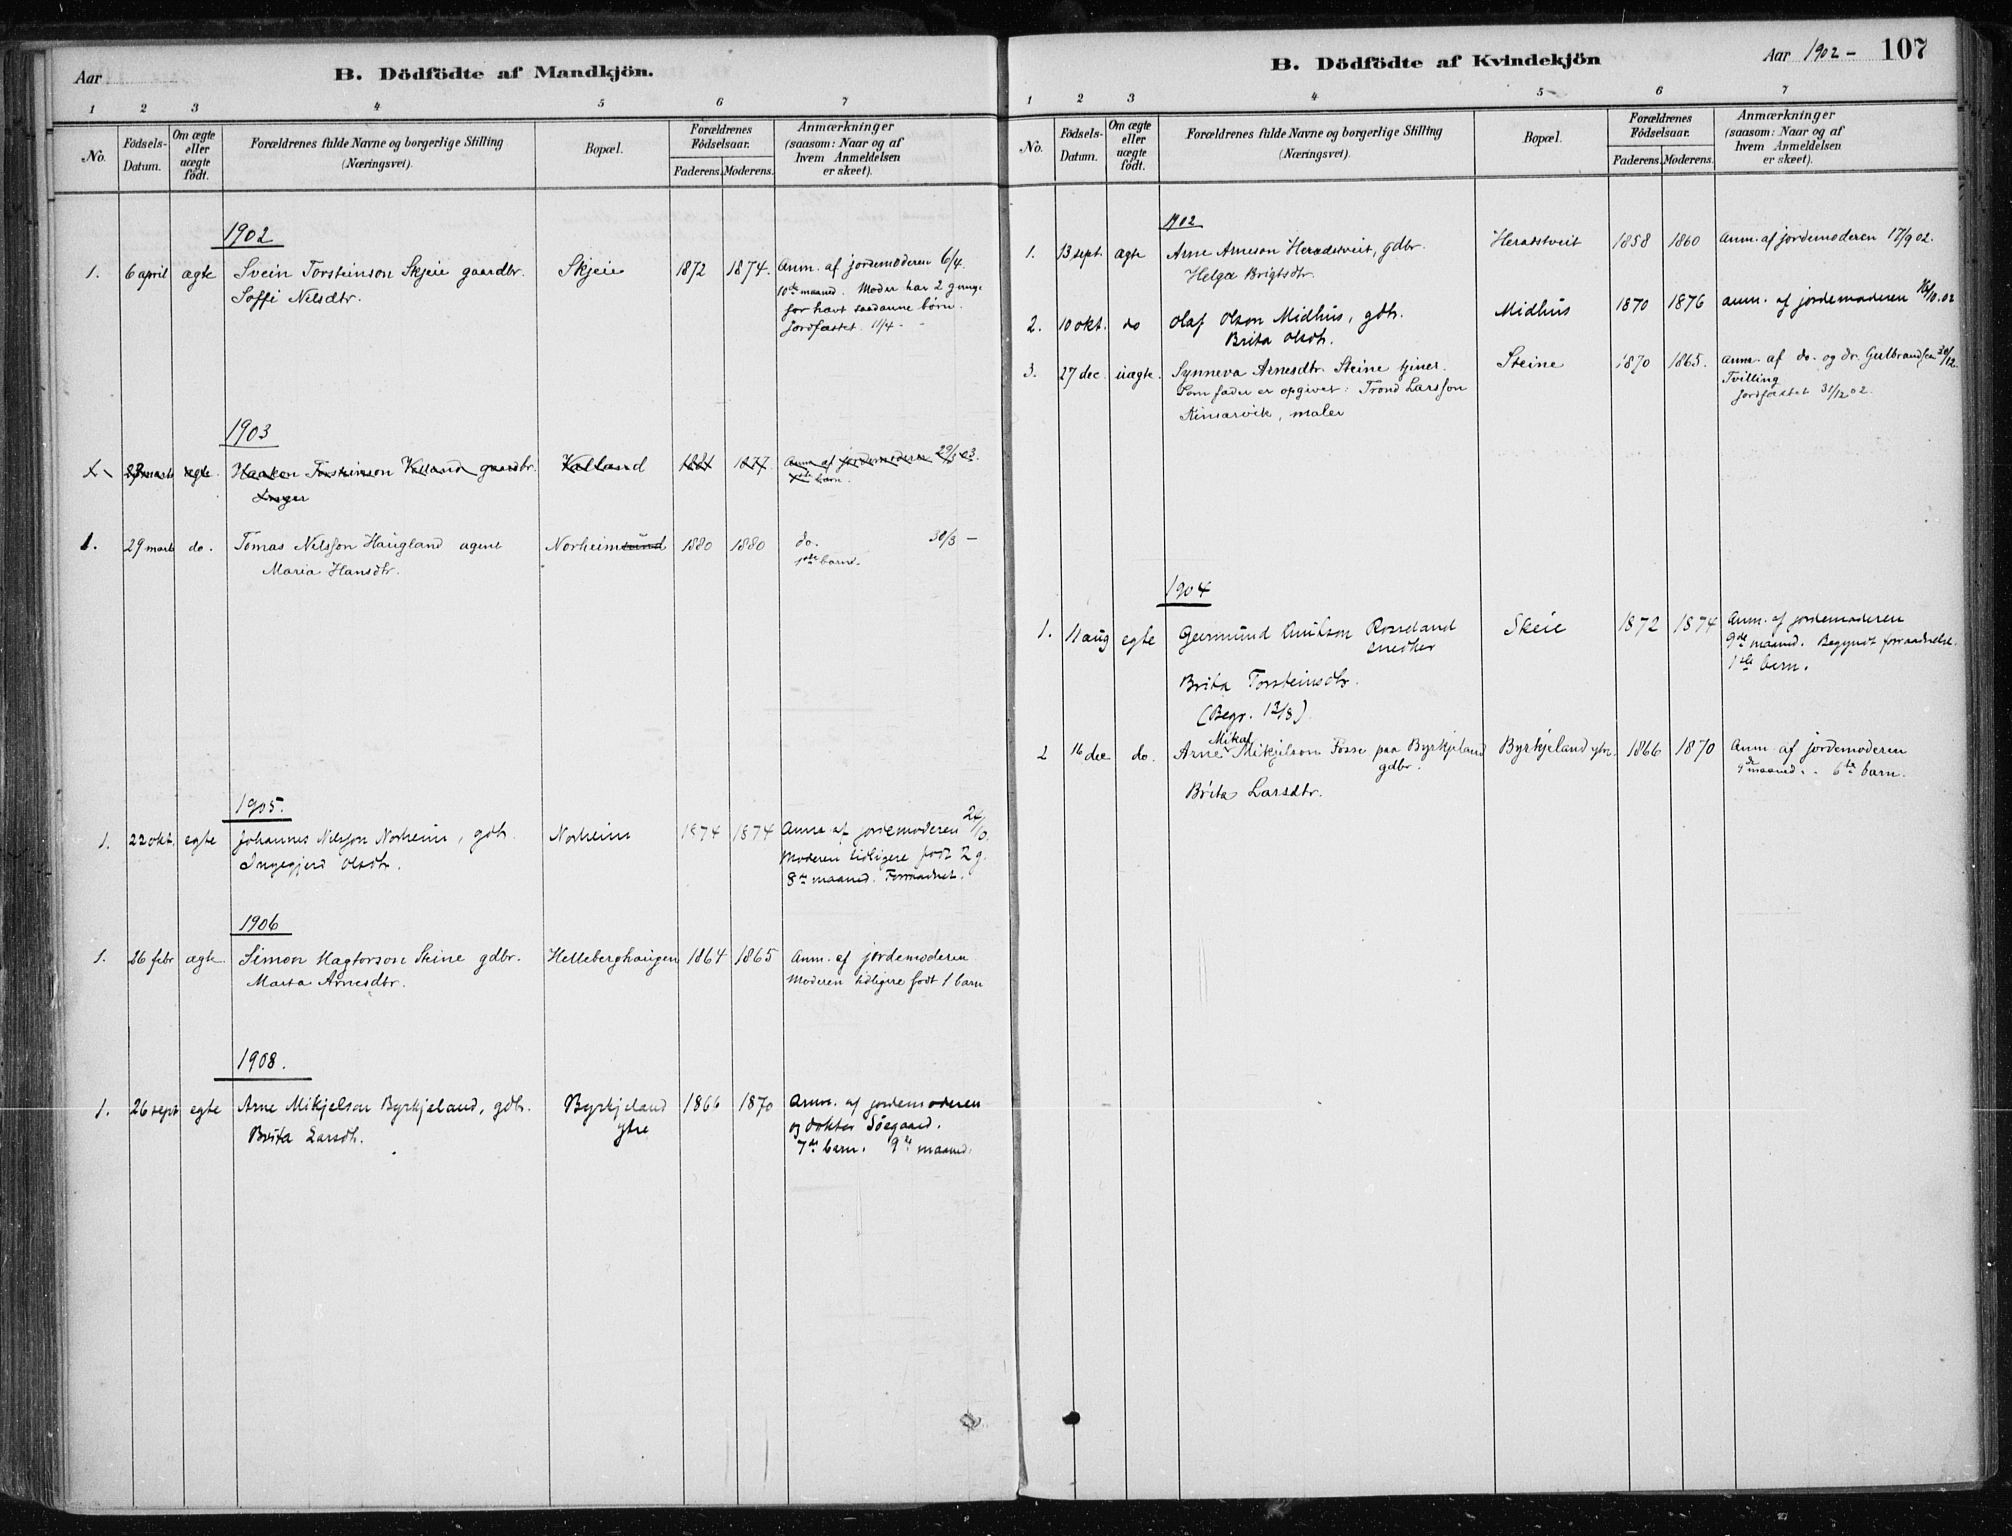 Aar
B. Dödfödte af Mandkjön.
1 2 3 4 5 6 7
No.
Födsels-Datum.
Om ægte eller uægte født.
Forældrenes fulde Navne og borgerlige Stilling (Næringsvei).
Bopæl.
Forældrenes Fødselsaar.
Faderens. Moderens.
Anmærkninger (saasom: Naar og af hvem Anmeldelsen er skeet).
1902
1. 6 april ægte Svein Torsteinson Skjeie gaardbr. Skjeie 1872 1874. Anm. af jordemoderen 6/4.
Soffi Nilsdtr. 10de maaned. Moder har 2 gange
før havt saadanne børn.
Jordfæstet 11/4 -
1903
1. 23 marts egte Haaken Torsteinson Kalland gaardbr. Kalland 1881 1877 Anm. af jordemoderen 29/3 03.
Inger barn.
1. 29 marts do. Tomas Nilsson Haugland agent Norheimsund 1880 1880 do. 30/3 -
Maria Hansdtr. 1ste barn.
1905.
1. 22 okt. egte Johannes Nilsson Norheim, gdbr. Norheim 1874 1874 Anm. af jordemoderen 24/10.
Ingegjerd Olsdtr. Moderen tidligere født 2 g.
8de maaned. Forraadnet.
1906
1. 26 febr ægte Simon Hagtorson Steine gdbr. Helleberghaugen 1864 1865 Anm. af jordemoderen
Marta Arnesdtr. Moderen tidligere født 1 barn
1908.
1. 26 sept egte Arne Mikjelson Byrkjeland, gdbr. Byrkjeland 1866 1870 Anm. af jordemoderen
Brita Larsdtr. ytre og doktor Söegaard.
7de barn. 9de maaned.
B. Dödfödte af Kvindekjön
Aar 1902 - 107
1 2 3 4 5 6 7
No.
Födsels-Datum.
Om ægte eller uægte født.
Forældrenes fulde Navne og borgerlige Stilling (Næringsvei).
Bopæl.
Forældrenes Födselsaar.
Faderens. Moderens.
Anmærkninger (saasom: Naar og af hvem Anmeldelsen er skeet).
1902
1. 13 sept. ægte Arne Arneson Heradstveit, gdbr. Heradstveit 1858 1860 Anm. af jordemoderen 17/9 02.
Helga Brigtsdtr.
2. 10 okt. do Olaf Olson Midhus, gdbr. Midhus 1870 1876 anm. af jordemoderen 16/10.02
Brita Olsdtr.
3. 27 dec. uægte. Synneva Arnesdtr. Steine tjener. Steine 1870 1865. Anm. af do. og dr. Gulbrandsen 30/12.
Som fader er opgivet: Trond Larsson Tvilling
Kinsarvik, maler jordfæstet 31/12 02.
1904
1. 11 aug egte Geirmund Rosseland Skeie 1872 1874 Anm. af jordemoderen
snedker 9de maaned. Begyndt forraadnelse.
Brita Torsteinsdtr. 1ste barn.
(Begr. 13/8).
Mikal
2 16 dec do. Arne Mikjelson Fosse paa Byrkjeland Byrkjeland ytre. 1866 1870 Anm. af jordemoderen
gdbr. 9de maaned. 6te barn.
Brita Larsdtr.